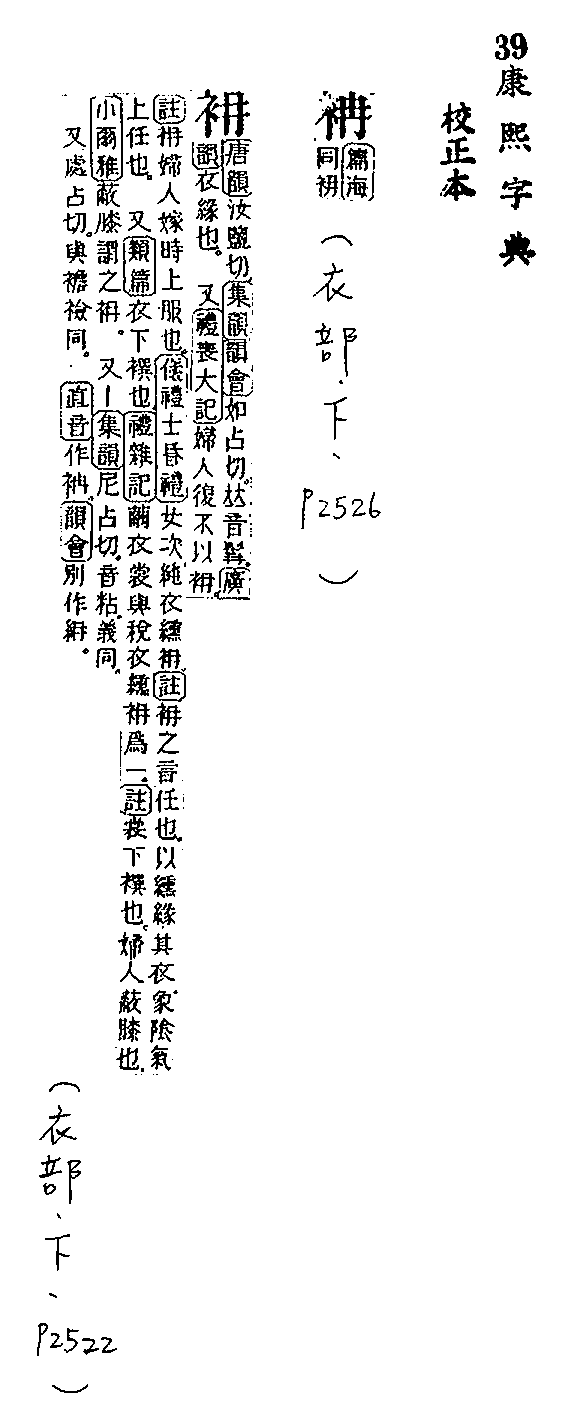 39
康熙字典
校正本
𥚃
篇海
同袡
（衣部．下、
P2526
）
袡
唐韻汝鹽切集韻韻會如占切𠀤音髥廣
韻衣緣也。又禮喪大記婦人復不以袡
註袡婦人嫁時上服也儀禮士昏禮女次純衣纁袡註袡之言任也以纁緣其衣象陰氣
上任也。又類篇衣下襈也禮雜記繭衣裳與稅衣纁袡爲一註裳下襈也婦人蔽膝也
小爾雅蔽膝謂之袡。又集韻尼占切音粘義同
又處占切與襜䘳同。直音作衻韻會別作𦁪。
（衣部．下、
P2522
）